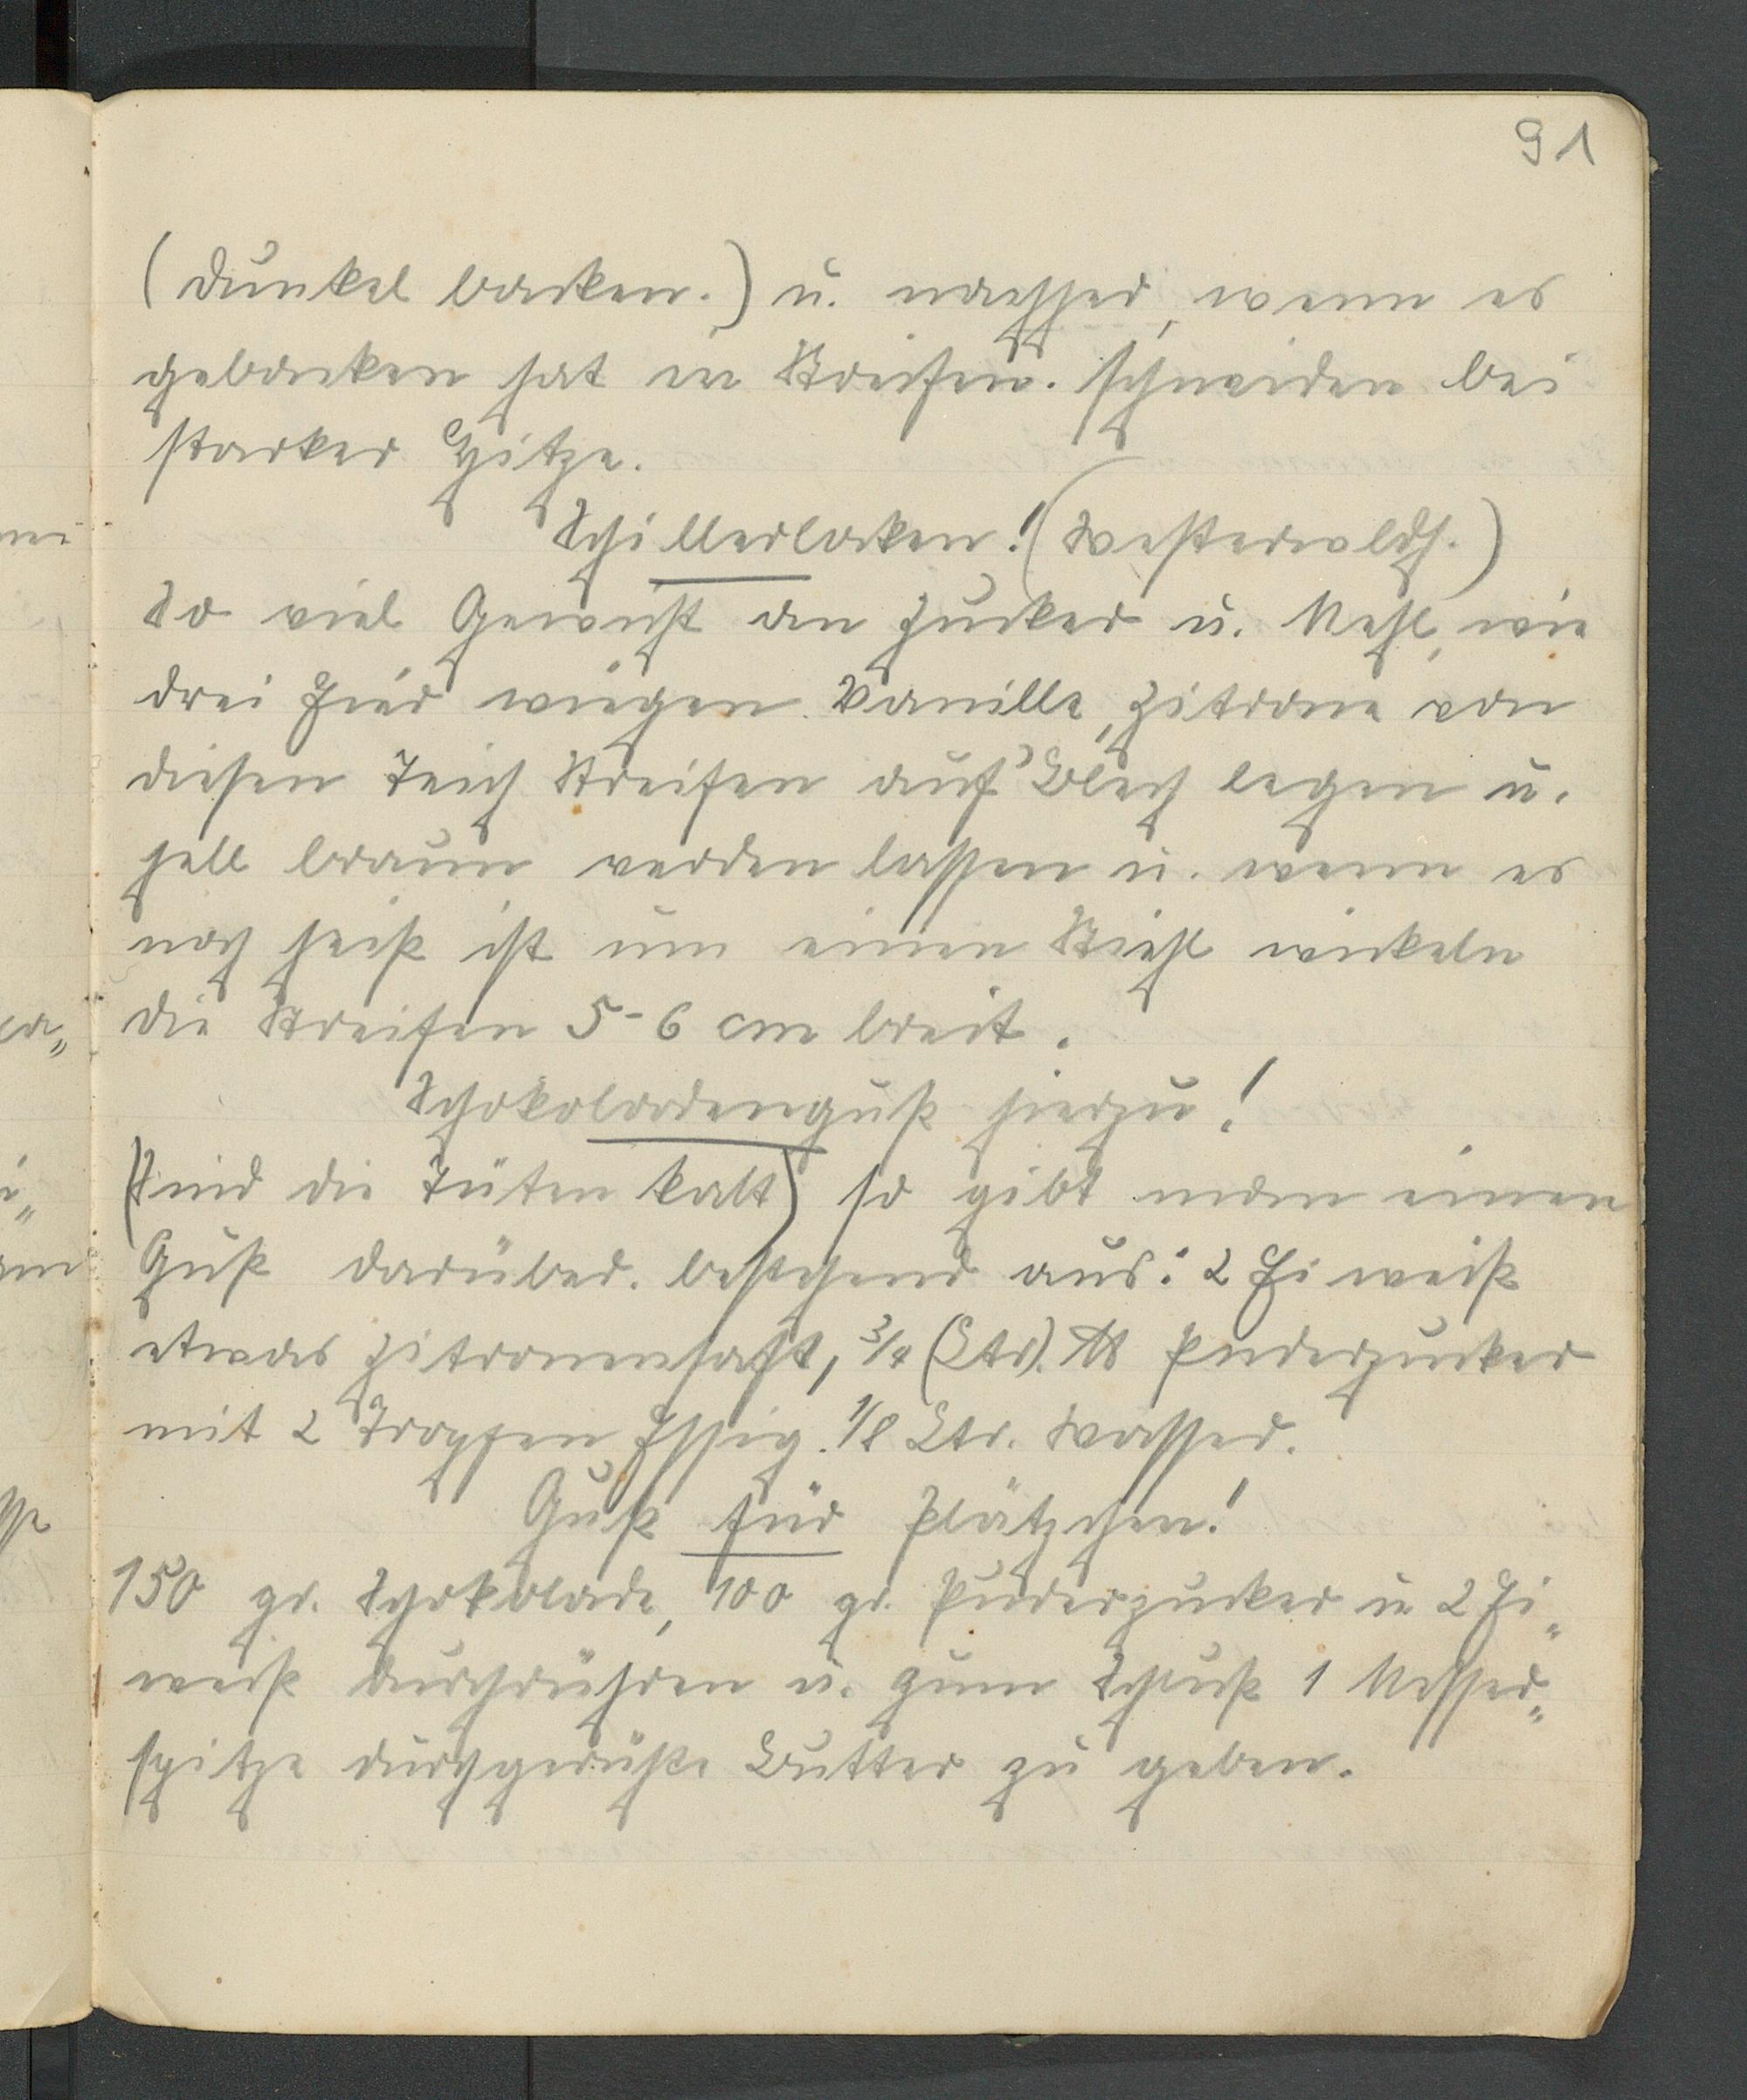 91
(dunkel backen.) u. nachher, wenn es
gebacken hat in Streifen. schneiden bei
starker Hitze.
Schillerlocken! (Westerwaldh.)
So viel Gewicht an Zucker u. Mehl, wie
drei Eier wiegen. Vanille, Zitrone von
diesen Teich Streifen auf Blech legen u.
hell braun werden lassen u. wenn es
noch heiß ist um einen Stiehl wickeln
die Streifen 5-6 cm breit.
Schokoladenguß hierzu!
(Sind die Tüten kalt) so gibt man einen
Guß darüber. bestehend aus: 2 Eiweiß
etwas Zitronensaft, 3/4 (Ltr). ℔ Puderzucker
mit 2 Tropfen Essig. 1/8 Ltr. Wasser.
Guß für Plätzchen!
150 gr. Schokolade, 100 gr. Puderzucker u. 2 Ei„
weiß durchrühren u. zum Schluß 1 Messer„
spitze durchgerührte Butter zu geben.